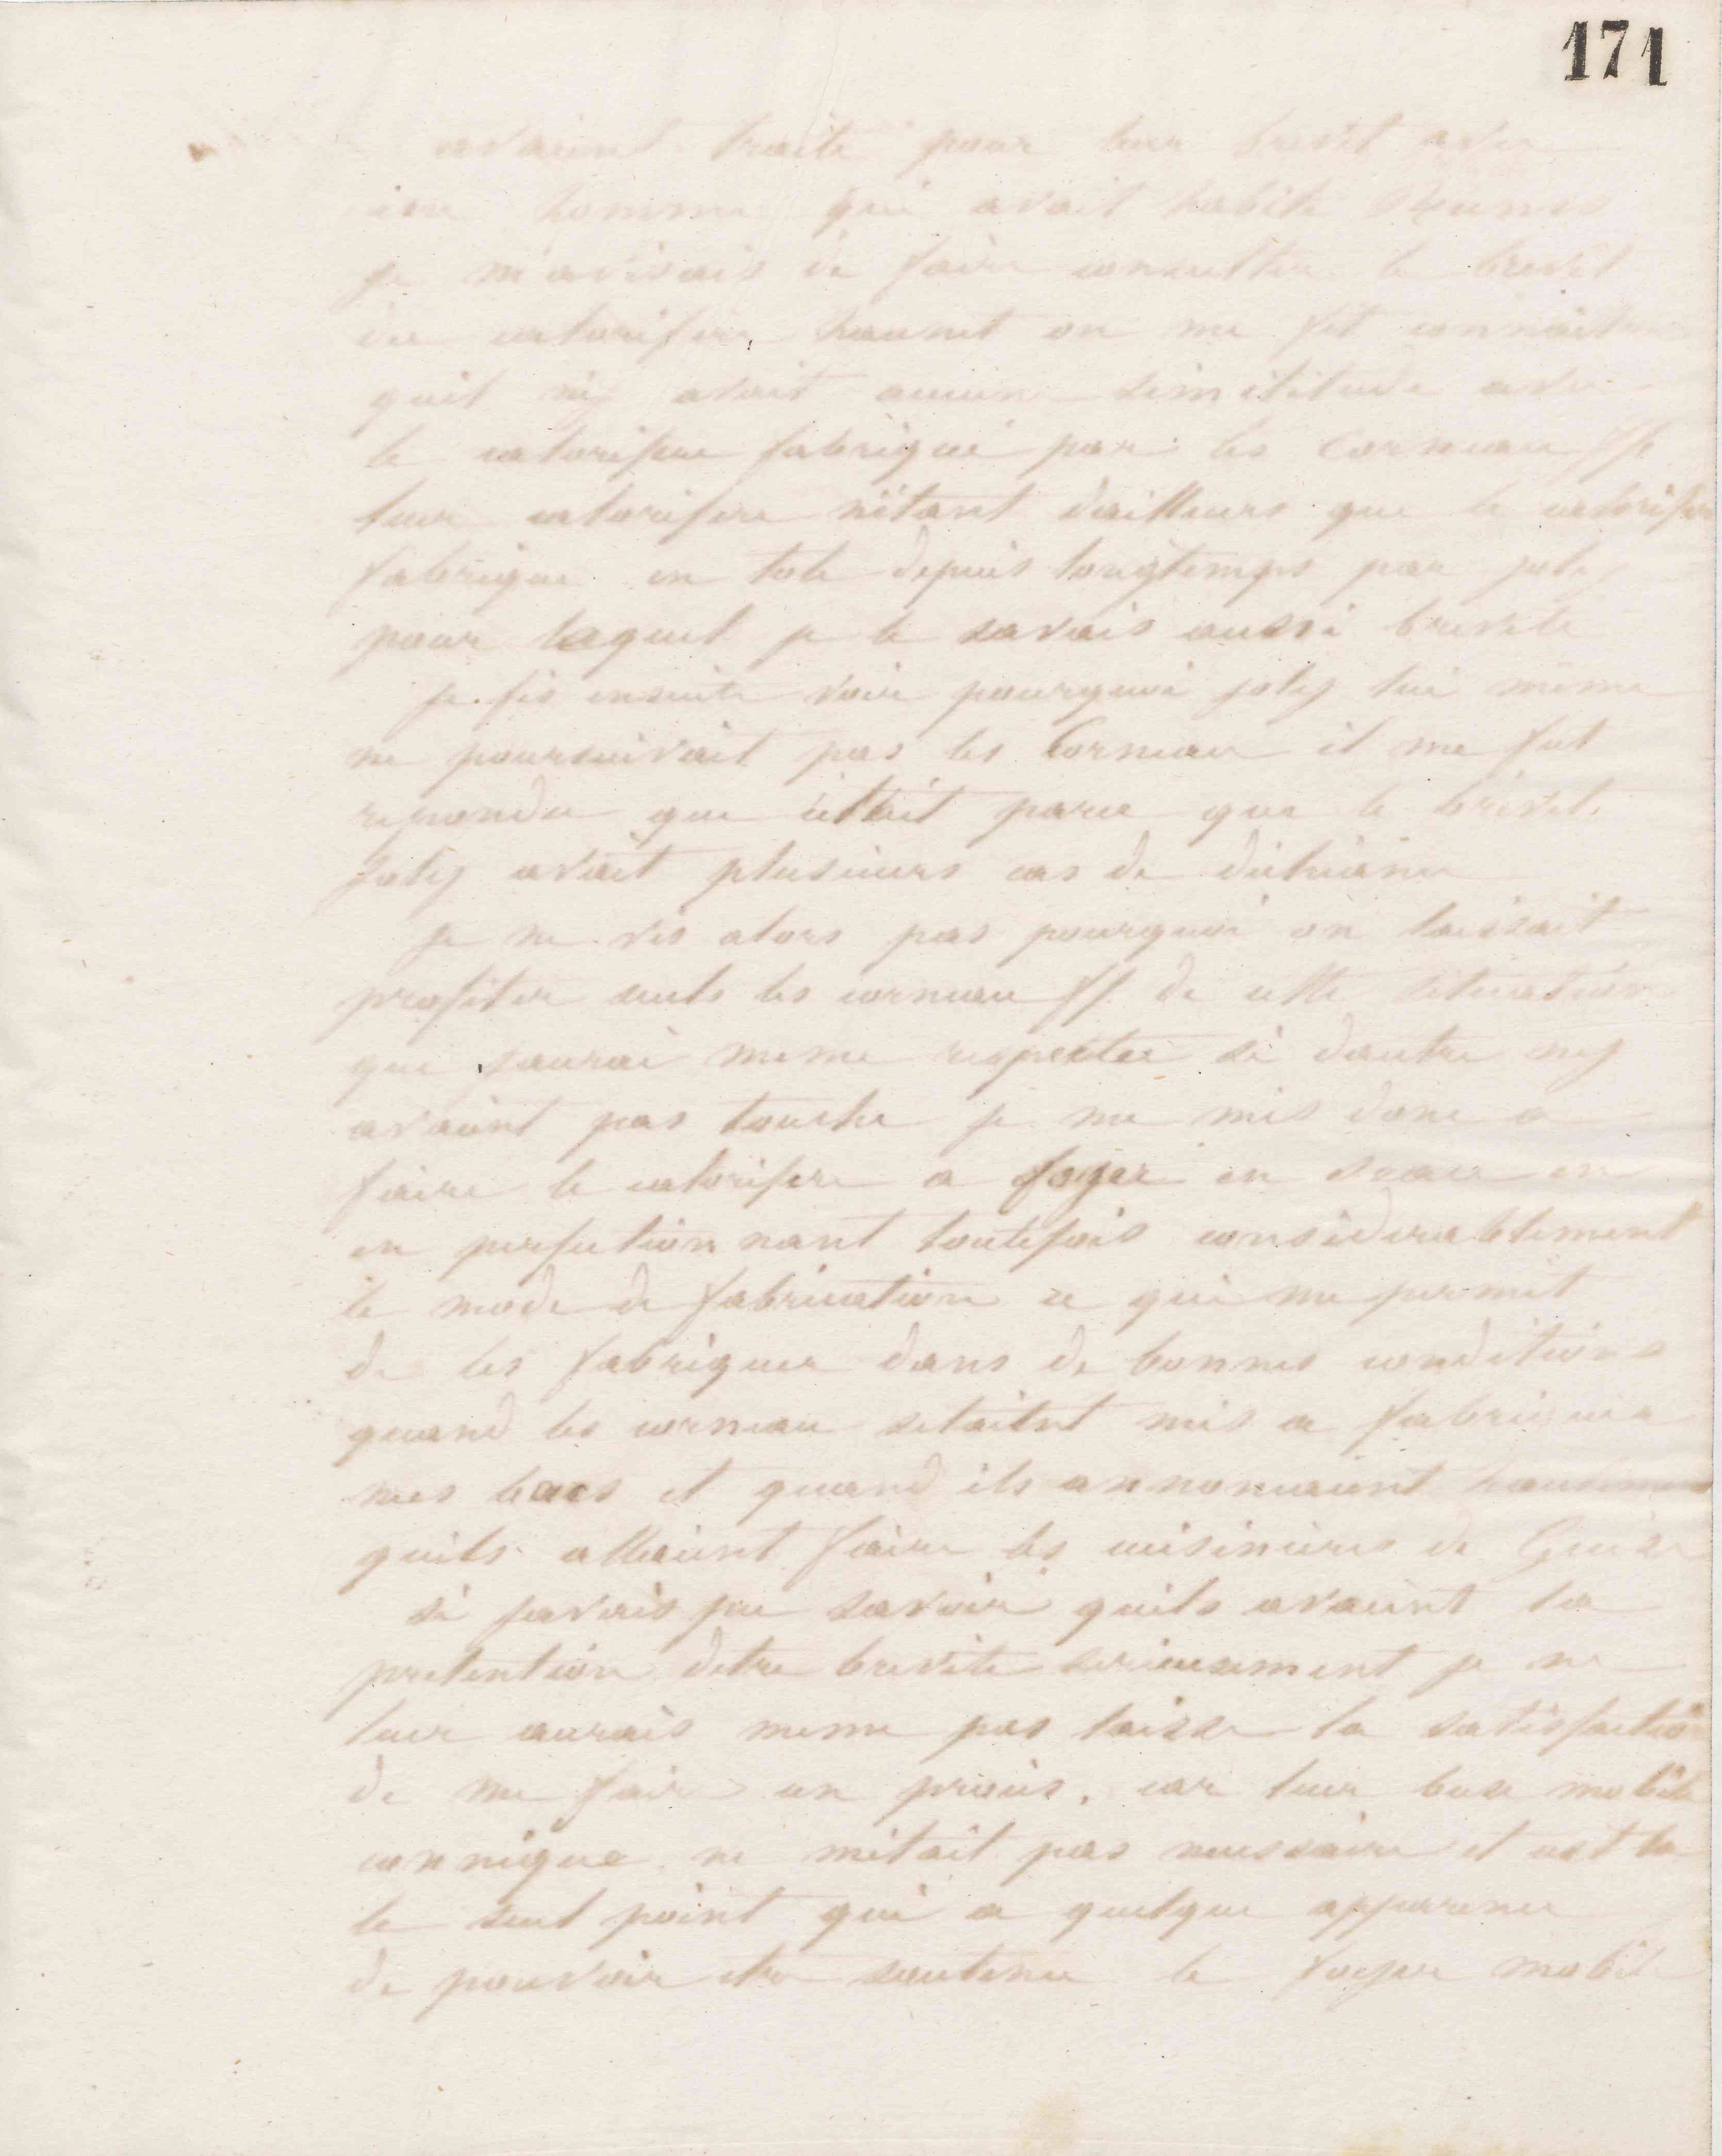 171
avaient traité pour leur brevet avec
une homme qui avait habité
je m'avisais de faire consulter le brevet
du calorifère, on me fit connaitre
quil ny avait aucune similitude avec
le calorifere fabriqué par les Corneau ff
leur calorifere nétant dailleurs que le calorifere
fabrique en tole depuis longtemps par joly
pour lequel je le savais aussi breveté
je fis ensuite voir pourquoi joly lui meme
ne poursuivait pas les Corneau il me fut
repondu que cétait parce que le brevet
joly avait plusieurs cas de déchéance
je ne vis alors pas pourquoi on laissait
profiter seuls les corneau ff de cette situation
que jaurai meme respectée si dautre ny
avaient pas touche je me mis donc a
faire le calorifere a foyer en
en perfectionnant toutefois considerablement
le mode de fabrication ce qui me permit
de les fabriquer dans de bonnes conditions
quand les corneau setaient mis a fabriquer
mes bacs et quand ils annoncaient
quils allaient faire les cuisinieres de Guise
si javais pu savoir quils avaient la
pretention detre breveté serieusement je ne
leur aurais meme pas laisse la satisfaction
de me faire un procès, car leur buse mobile
connique ne métait pas necessaire et cest la
le seul point qui a quelque apparence
de pouvoir etre soutenu le foyer mobile